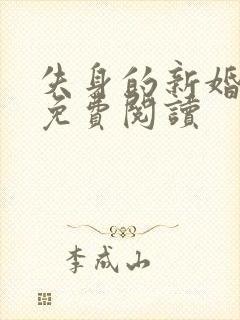 失身的新婚
免費閱讀
李成山